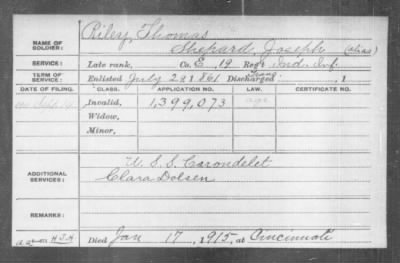 Riley, Thomas
NAME OF SOLDIER: Shepard, Joseph (alias)
SERVICE: Late rank, Co. E, 19 Reg't Ind. Inf.
TERM OF SERVICE: Enlisted July 28 1861 Discharged Trans. , 1
DATE OF FILING. CLASS. APPLICATION NO. LAW. CERTIFICATE NO.
Invalid, 1,399,073 age
Widow,
Minor,
U. S. S. Carondelet
ADDITIONAL SERVICES: Clara Dolsen
REMARKS:
Died Jan 17, 1915, at Cincinnati